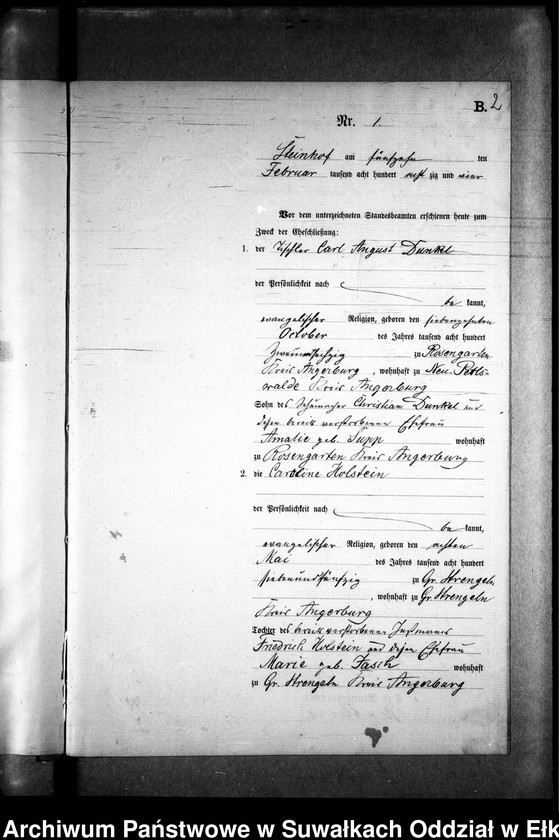 B. 2
Nr. 1.
Steinhof am fünfzehn ten
Februar tausend acht hundert acht zig und vier
Vor dem unterzeichneten Standesbeamten erschienen heute zum
Zweck der Eheschließung:
1. der Tischler Carl August Dunkel
der Persönlichkeit nach
be kannt,
evangelischer Religion, geboren den siebenzehnten
October des Jahres tausend acht hundert
zweiundsechzig zu Rosengarten
Kreis Angerburg, wohnhaft zu Neu-Perls-
walde Kreis Angerburg
Sohn des Schumacher Christian Dunkel und
dessen bereits verstorbenen Ehefrau
Amalie geb. Supp wohnhaft
zu Rosengarten Kreis Angerburg
2. die Caroline Holstein
der Persönlichkeit nach
be kannt,
evangelischer Religion, geboren den achten
Mai des Jahres tausend acht hundert
siebenundfünfzig zu Gr. Strengeln
, wohnhaft zu Gr. Strengeln
Kreis Angerburg
Tochter des bereits verstorbenen Instmanns
Friedrich Holstein und dessen Ehefrau
Marie geb. Jasch wohnhaft
zu Gr. Strengeln Kreis Angerburg
Archiwum Państwowe w Suwałkach Oddział w Ełk